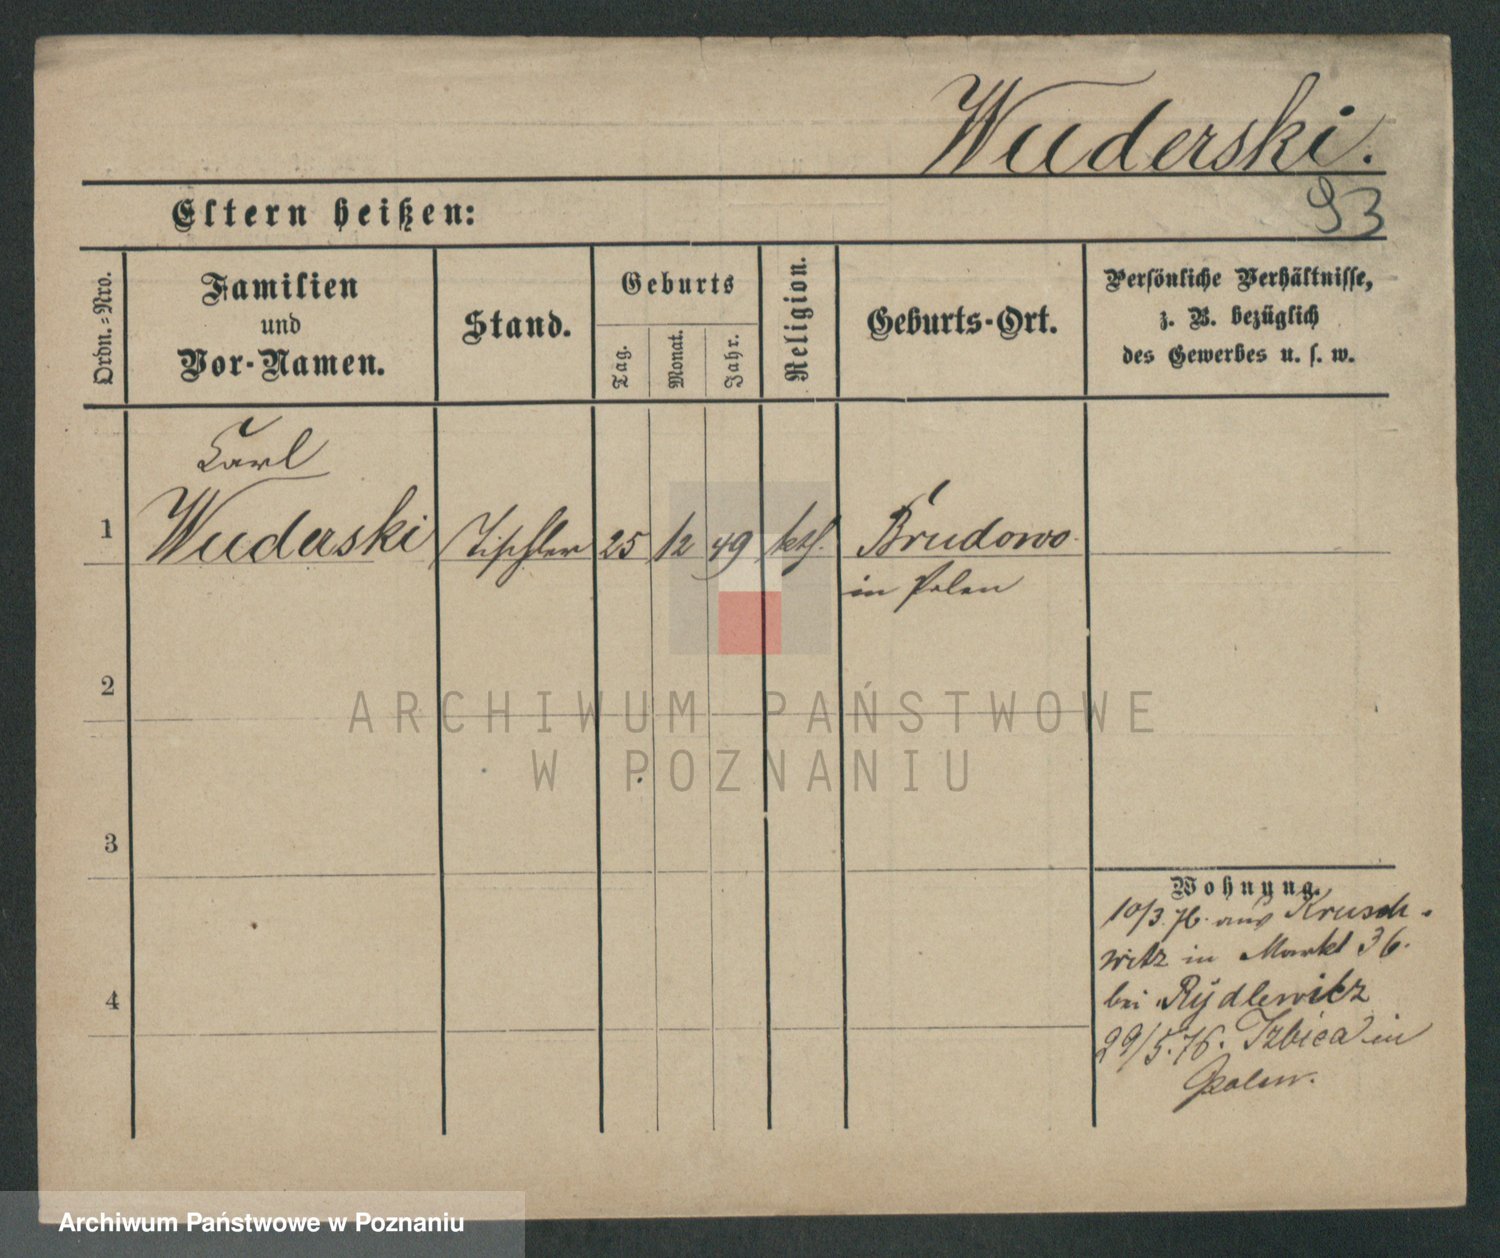 Wuderski.
93
Eltern heißen:
Ordn.=Nro.
Familien
und
Vor-Namen.
Stand.
Geburts
Tag.
Monat.
Jahr.
Religion.
Geburts-Ort.
Persönliche Verhältnisse,
z. B. bezüglich
des Gewerbes u. s. w.
Carl
1 Wuderski Tischler 25 12 49 kth. Brudowo
in Polen
2
3
4
Wohnung.
10/3. 76. aus Krusch-
witz in Markt 36.
bei Rÿdlewitz
29/5. 76. Izbica in
Polen.
ARCHIWUM PAŃSTWOWE
W POZNANIU
Archiwum Państwowe w Poznaniu